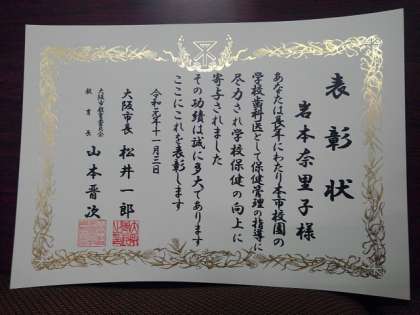 表彰状
岩本奈里子様
あなたは長年にわたり本市校園の
学校歯科医として保健管理の指導に
尽力され学校保健の向上に
寄与されました
その功績は誠に多大であります
ここにこれを表彰します
令和元年十一月三日
大阪市長 松井一郎
大阪市教育委員会
教育長 山本晋次